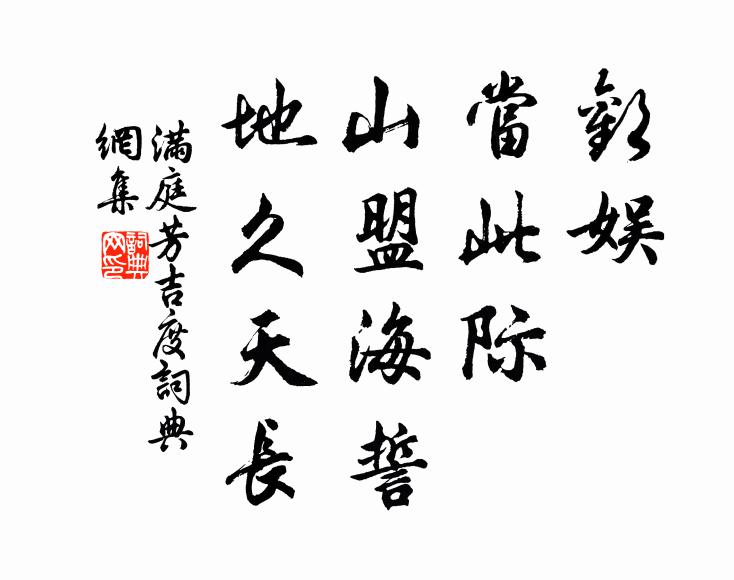 歡娛
當此际
山盟海誓
地久天長
滿庭芳吉度詞典
網集
詞典
网印